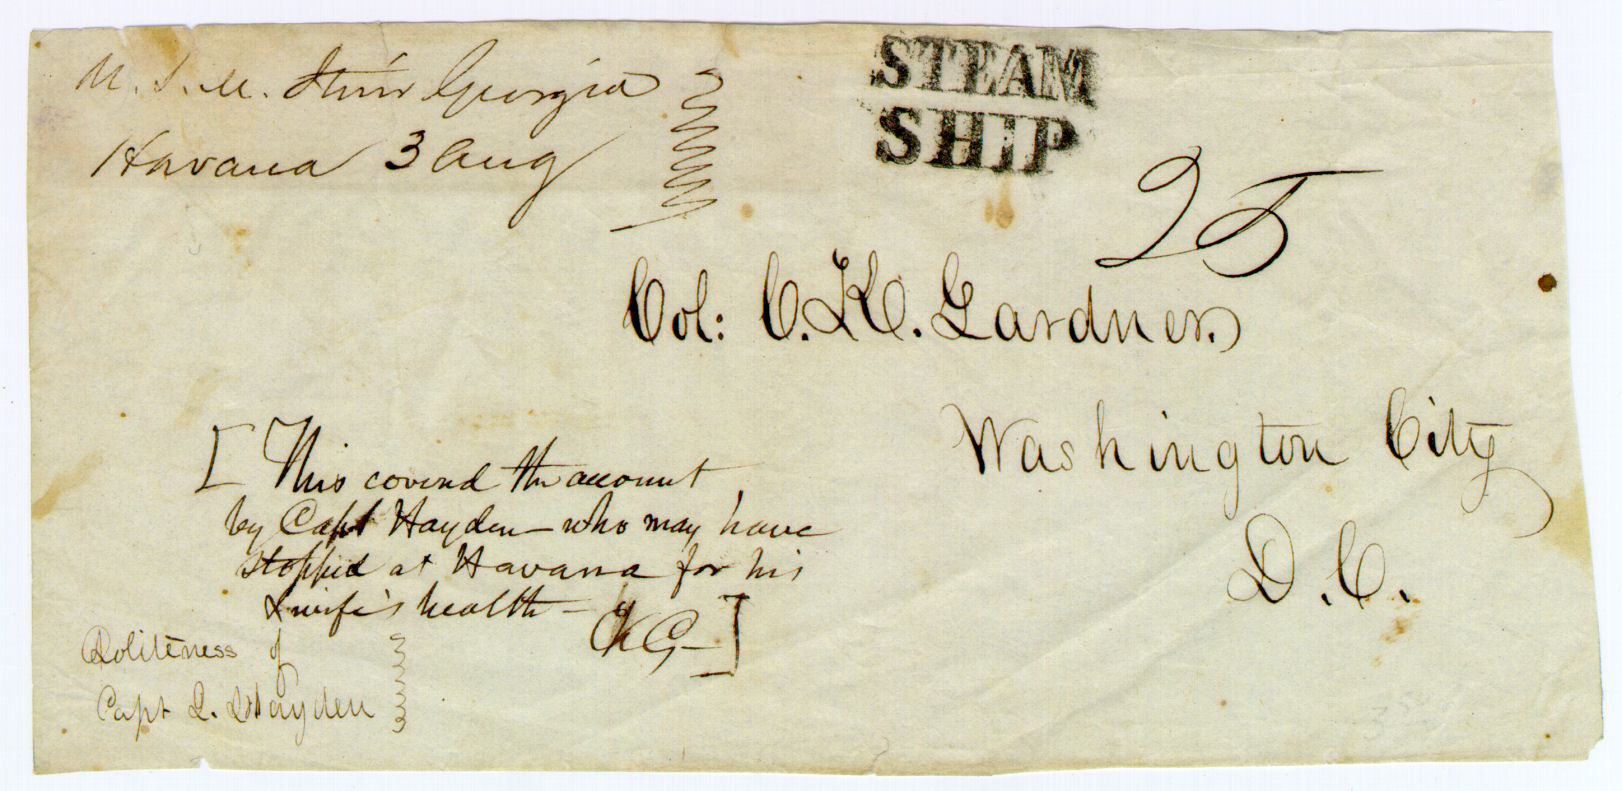 U. S. M. Stmr Georgia
Havana 3 Aug
STEAM
SHIP
25
Col: C. K. Gardner.
Washington City
D. C.
[ This covered the account
by Capt Hayden - who may have
stopped at Havana for his
wife's health -
CKG - ]
Politeness of
Capt L. Hayden